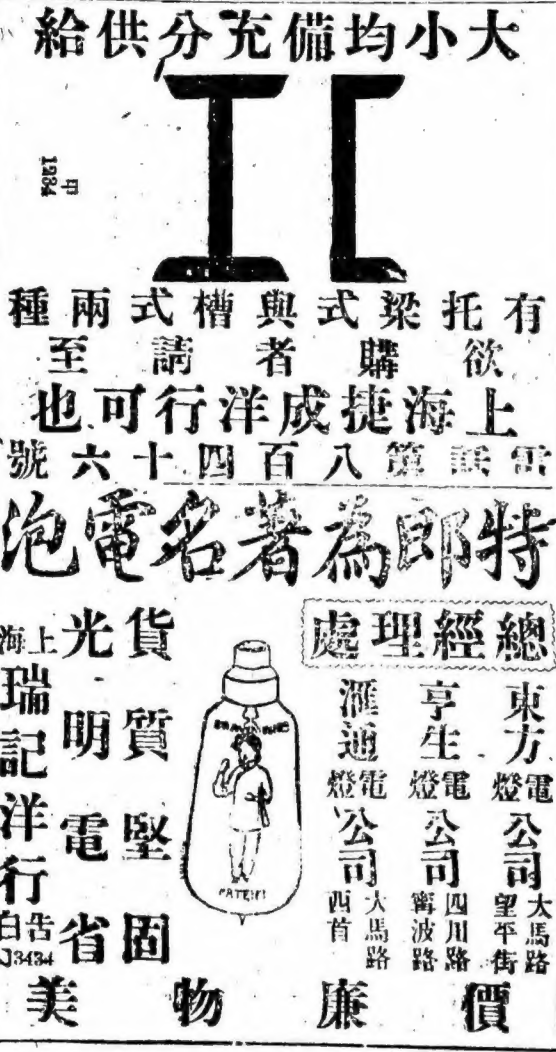 大小均備充分供給
甲1234
有托梁式與槽式兩種
欲購者請至
上海捷成洋行可也
電話第八百四十六號
特郎為著名電泡
總經理處
東方電燈公司大馬路望平街
亨生電燈公司四川路寧波路
滙通電燈公司大馬路西首
PATENT
貨質堅固
光明電省
上海瑞記洋行告白
J3434
價廉物美